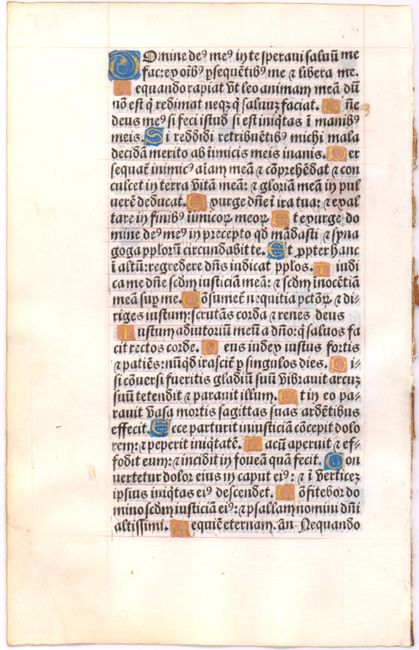 Domine de⁹ me⁹ in te speraui saluū me
fac: ex oīb⁹ ꝑsequētib⁹ me ⁊ libera me.
Nequando rapiat vt leo animam meā: dū
nō est q̇ redimat neqꝫ q̇ saluuꝫ faciat. Dn̄e
deus me⁹ si feci istud si est iniq̇tas ī manib⁹
meis. Si reddidi retribuētib⁹ michi mala
decidā merito ab īimicis meis inanis. Per
sequat̄ inimic⁹ aīam meā ⁊ cōprehēdat ⁊ con
culcet in terra vitā meā: ⁊ gloriā meā in pul
uerē deducat. Exurge dn̄e ī ira tua: ⁊ exal
tare in finib⁹ īimicoꝝ meoꝝ. Et exurge do
mine de⁹ me⁹ in precepto qd̄ mādasti ⁊ syna
goga pploꝝ circundabit te. Et ꝓpter hanc
ī altū: regredere dn̄s iudicat pplos. Iudi
ca me dn̄e scdm iusticiā meā: ⁊ scdm inocētiā
meā sup me. Cōsumet̄ neq̇tia pctōꝝ ⁊ di-
riges iustum: scrutās corda ⁊ renes deus
Iustum adiutoriū meū a dn̄o: q̇ saluos fa
cit rectos corde. Deus iudex iustus fortis
⁊ patiēs: nūq̇d irascit̄ ꝑ singulos dies. Ni-
si cōuersi fueritis gladiū suū vibrauit arcuꝫ
suū tetendit ⁊ parauit illum. Et in eo pa-
rauit vasa mortis sagittas suas ardētibus
effecit. Ecce parturit iniusticiam cōcepit dolo
rem: ⁊ peperit iniq̇tatē. Lacū aperuit ⁊ ef-
fodit eum: ⁊ incidit in foueā quā fecit. Con
uertetur dolor eius in caput ei⁹: ⁊ ī verticeꝫ
ipsius iniq̇tas ei⁹ descendet. Cōfitebor do
mino scdm iusticiā ei⁹: ⁊ psallam nomini dn̄i
altissimi. Requiē eternam. an̄ Nequando